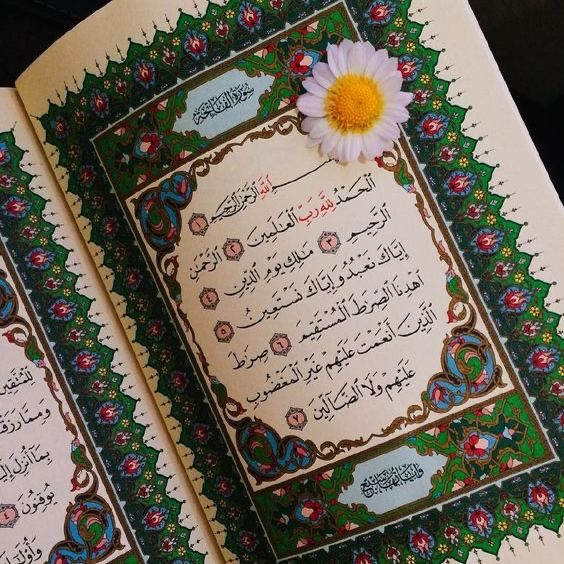 سورة الفاتحة
الله الرحمن الرحيم ١
الحمد لله رب العلمين ٢ الرحمن
الرحيم ٣ ملك يوم الدين ٤
إياك نعبد وإياك نستعين ٥
اهدنا الصرط المستقيم ٦ صرط
الذين أنعمت عليهم غير المغضوب
عليهم ولا الضالين ٧
وآياتها سبع
للمتقين
ومما رزق
بما أنزل إلي
يوقنون ٤
وأولئ